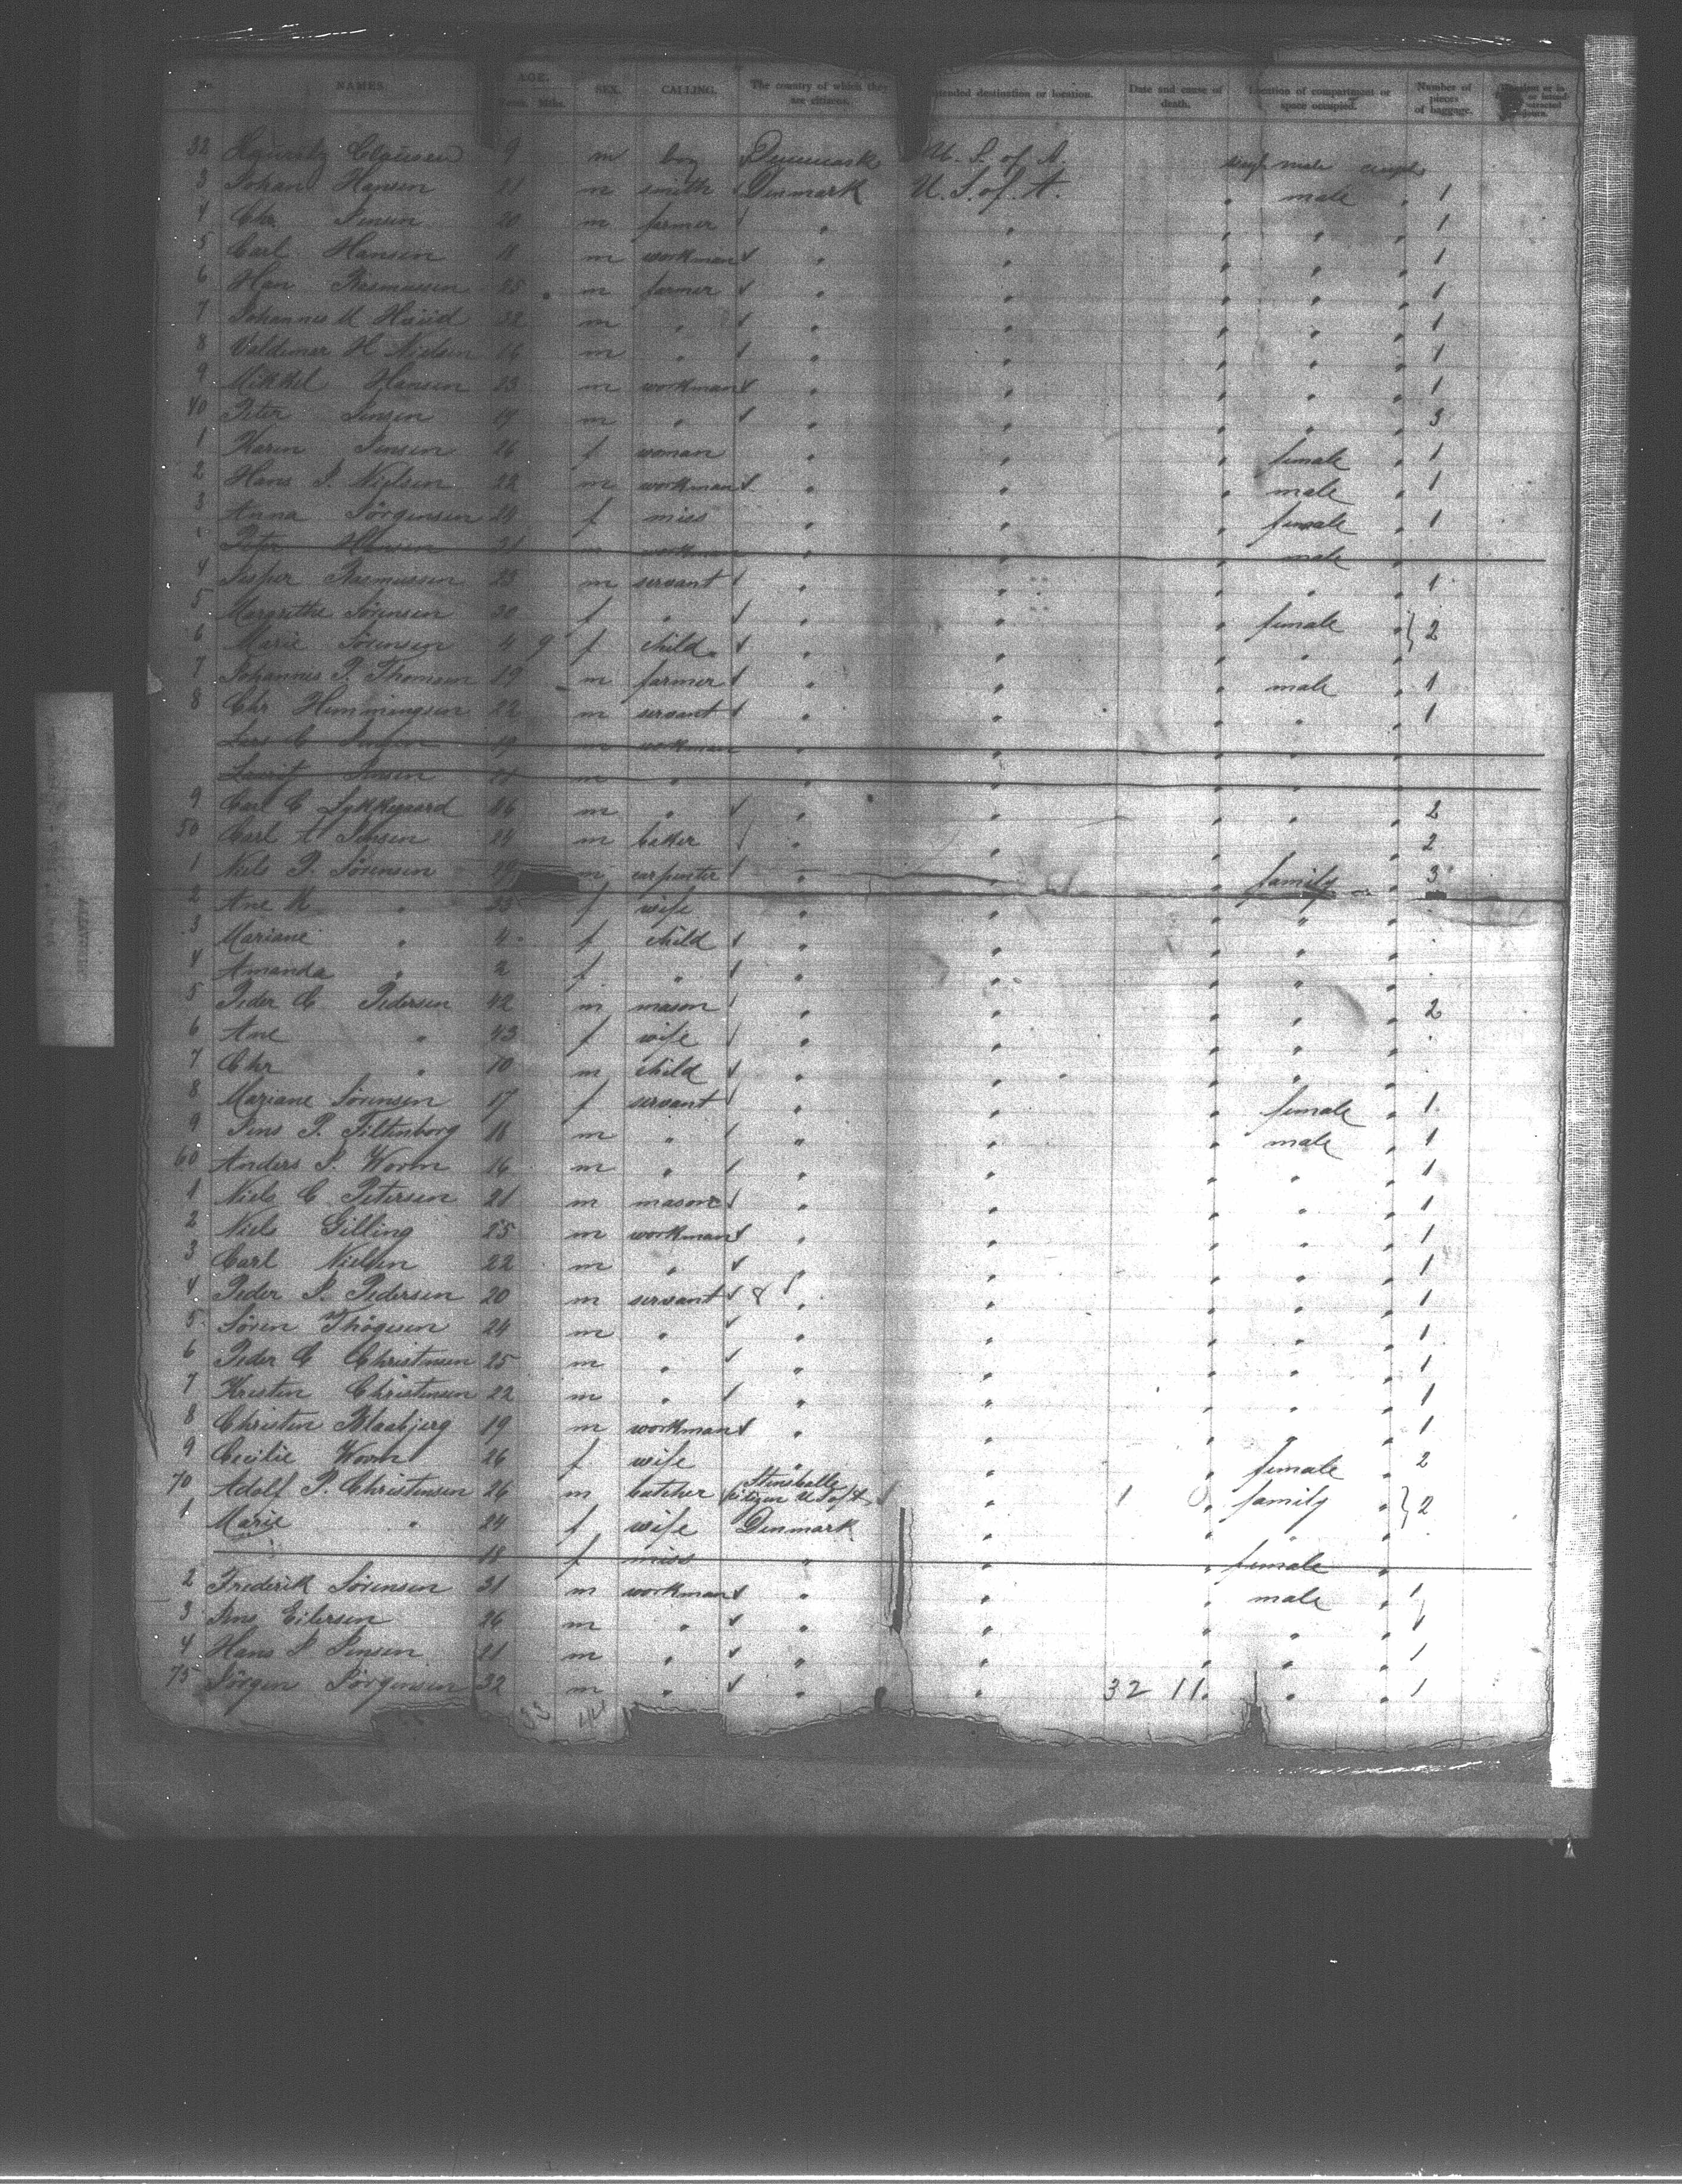 No. NAMES AGE. SEX. CALLING. The country of which they are citizens. Intended destination or location. Date and cause of death. Location of compartment or space occupied. Number of pieces of baggage.
Years. Mths.
32 Clausen 9 m boy Denmark U. S. of A. male
3 Johan Hansen 21 m smith Denmark U. S. of A. " male " 1
4 Chr Jensen 20 m farmer " " " " " 1
5 Carl Hansen 18 m workman " " " " " 1
6 Han Rasmussen 25 m farmer " " " " " 1
7 Johannes M m " " " " " " 1
8 Valdemar H Nielsen 16 m " " " " " " 1
9 Mikkel Hansen 23 m workman " " " " " 1
40 Peter Jensen 19 m " " " " " " 3
1 Karen Jensen 26 f woman " " " female " 1
2 Hans P. Nielsen 22 m workman " " " male " 1
3 Anna Jörgensen f miss " " " female " 1
Peter Hansen 21 m workman " " " male "
4 Jesper Rasmussen 23 m servant " " " " " 1
5 Margrethe Sörensen 30 f " " " " female " 2
6 Marie Sörensen 4 9 f child " " " " "
7 Johannes P. Thomsen 19 m farmer " " " male " 1
8 Chr Hemmingsen 22 m servant " " " " " 1
Lars C Jensen 19 m workman " " " " "
Lauritz Jensen m " " " " " "
9 Carl C Lykkegaard 16 m " " " " " " 2
50 Carl A Jensen 24 m baker " " " " " 2
1 Niels P. Sörensen 29 m carpenter " " " family " 3
2 Ane M " f wife " " " " "
3 Mariane " 4 f child " " " " "
4 Amanda " 2 f " " " " " "
5 Peder C Pedersen 42 m mason " " " " " 2
6 Ane " 43 f wife " " " " "
7 Chr " 10 m child " " " " "
8 Mariane Sörensen 17 f servant " " " female " 1
9 Jens P. Filtenborg 18 m " " " " male " 1
60 Anders P. Worm 16 m " " " " " " 1
1 Niels C Petersen 21 m mason " " " " " 1
2 Niels Gilling 25 m workman " " " " " 1
3 Carl Nielsen 22 m " " " " " " 1
4 Peder P. Pedersen 20 m servant " " " " " 1
5 Sören Thögesen 24 m " " " " " " 1
6 Peder C Christensen 25 m " " " " " " 1
7 Kresten Christensen 22 m " " " " " " 1
8 Christen Blaabjerg 19 m workman " " " " " 1
9 Cecilie Worm 26 f wife " " " female " 2
70 Adolf P. Christensen 26 m butcher citizen U S of A " 1 " family " 2
1 Marie " 24 f wife Denmark " " " "
18 f miss " " " female "
2 Frederik Sörensen 31 m workman " " " male " 1
3 Jens Eilersen 26 m " " " " " " 1
4 Hans P Jensen 21 m " " " " " " 1
75 Jörgen Jörgensen 32 m " " " 32 11 " " " 1